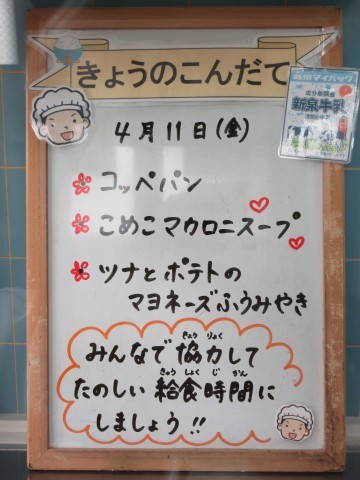 きょうのこんだて
4月11日(金)
コッペパン
こめこマカロニスープ
ツナとポテトの
マヨネーズふうみやき
みんなで協力して
きょうりょく
たのしい給食時間に
きゅうしょくじかん
しましょう!!
成分無調整
新泉牛乳